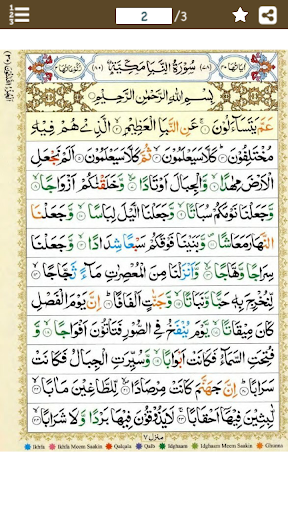 2 /3
سُوْرَةُ النَّبَاِ مَكِّيَّةٌ
بِسْمِ اللّٰهِ الرَّحْمٰنِ الرَّحِيْمِ
عَمَّ يَتَسَآءَلُوْنَ ۝۱ عَنِ النَّبَاِ الْعَظِيْمِ ۝۲ الَّذِيْ هُمْ فِيْهِ
مُخْتَلِفُوْنَ ۝۳ كَلَّا سَيَعْلَمُوْنَ ۝۴ ثُمَّ كَلَّا سَيَعْلَمُوْنَ ۝۵ اَلَمْ نَجْعَلِ
الْاَرْضَ مِهٰدًا ۝۶ وَّالْجِبَالَ اَوْتَادًا ۝۷ وَّخَلَقْنٰكُمْ اَزْوَاجًا ۝۸
وَّجَعَلْنَا نَوْمَكُمْ سُبَاتًا ۝۹ وَّجَعَلْنَا الَّيْلَ لِبَاسًا ۝۱۰ وَّجَعَلْنَا
النَّهَارَ مَعَاشًا ۝۱۱ وَّبَنَيْنَا فَوْقَكُمْ سَبْعًا شِدَادًا ۝۱۲ وَّجَعَلْنَا
سِرَاجًا وَّهَّاجًا ۝۱۳ وَّاَنْزَلْنَا مِنَ الْمُعْصِرٰتِ مَآءً ثَجَّاجًا ۝۱۴
لِّنُخْرِجَ بِهٖ حَبًّا وَّنَبَاتًا ۝۱۵ وَّجَنّٰتٍ اَلْفَافًا ۝۱۶ اِنَّ يَوْمَ الْفَصْلِ
كَانَ مِيْقَاتًا ۝۱۷ يَّوْمَ يُنْفَخُ فِي الصُّوْرِ فَتَاْتُوْنَ اَفْوَاجًا ۝۱۸ وَّ
فُتِحَتِ السَّمَآءُ فَكَانَتْ اَبْوَابًا ۝۱۹ وَّسُيِّرَتِ الْجِبَالُ فَكَانَتْ
سَرَابًا ۝۲۰ اِنَّ جَهَنَّمَ كَانَتْ مِرْصَادًا ۝۲۱ لِّلطَّاغِيْنَ مَاٰبًا ۝۲۲
لّٰبِثِيْنَ فِيْهَآ اَحْقَابًا ۝۲۳ لَا يَذُوْقُوْنَ فِيْهَا بَرْدًا وَّلَا شَرَابًا ۝۲۴
منزل ۷
Ikhfa Ikhfa Meem Saakin Qalqala Qalb Idghaam Idghaam Meem Saakin Ghunna